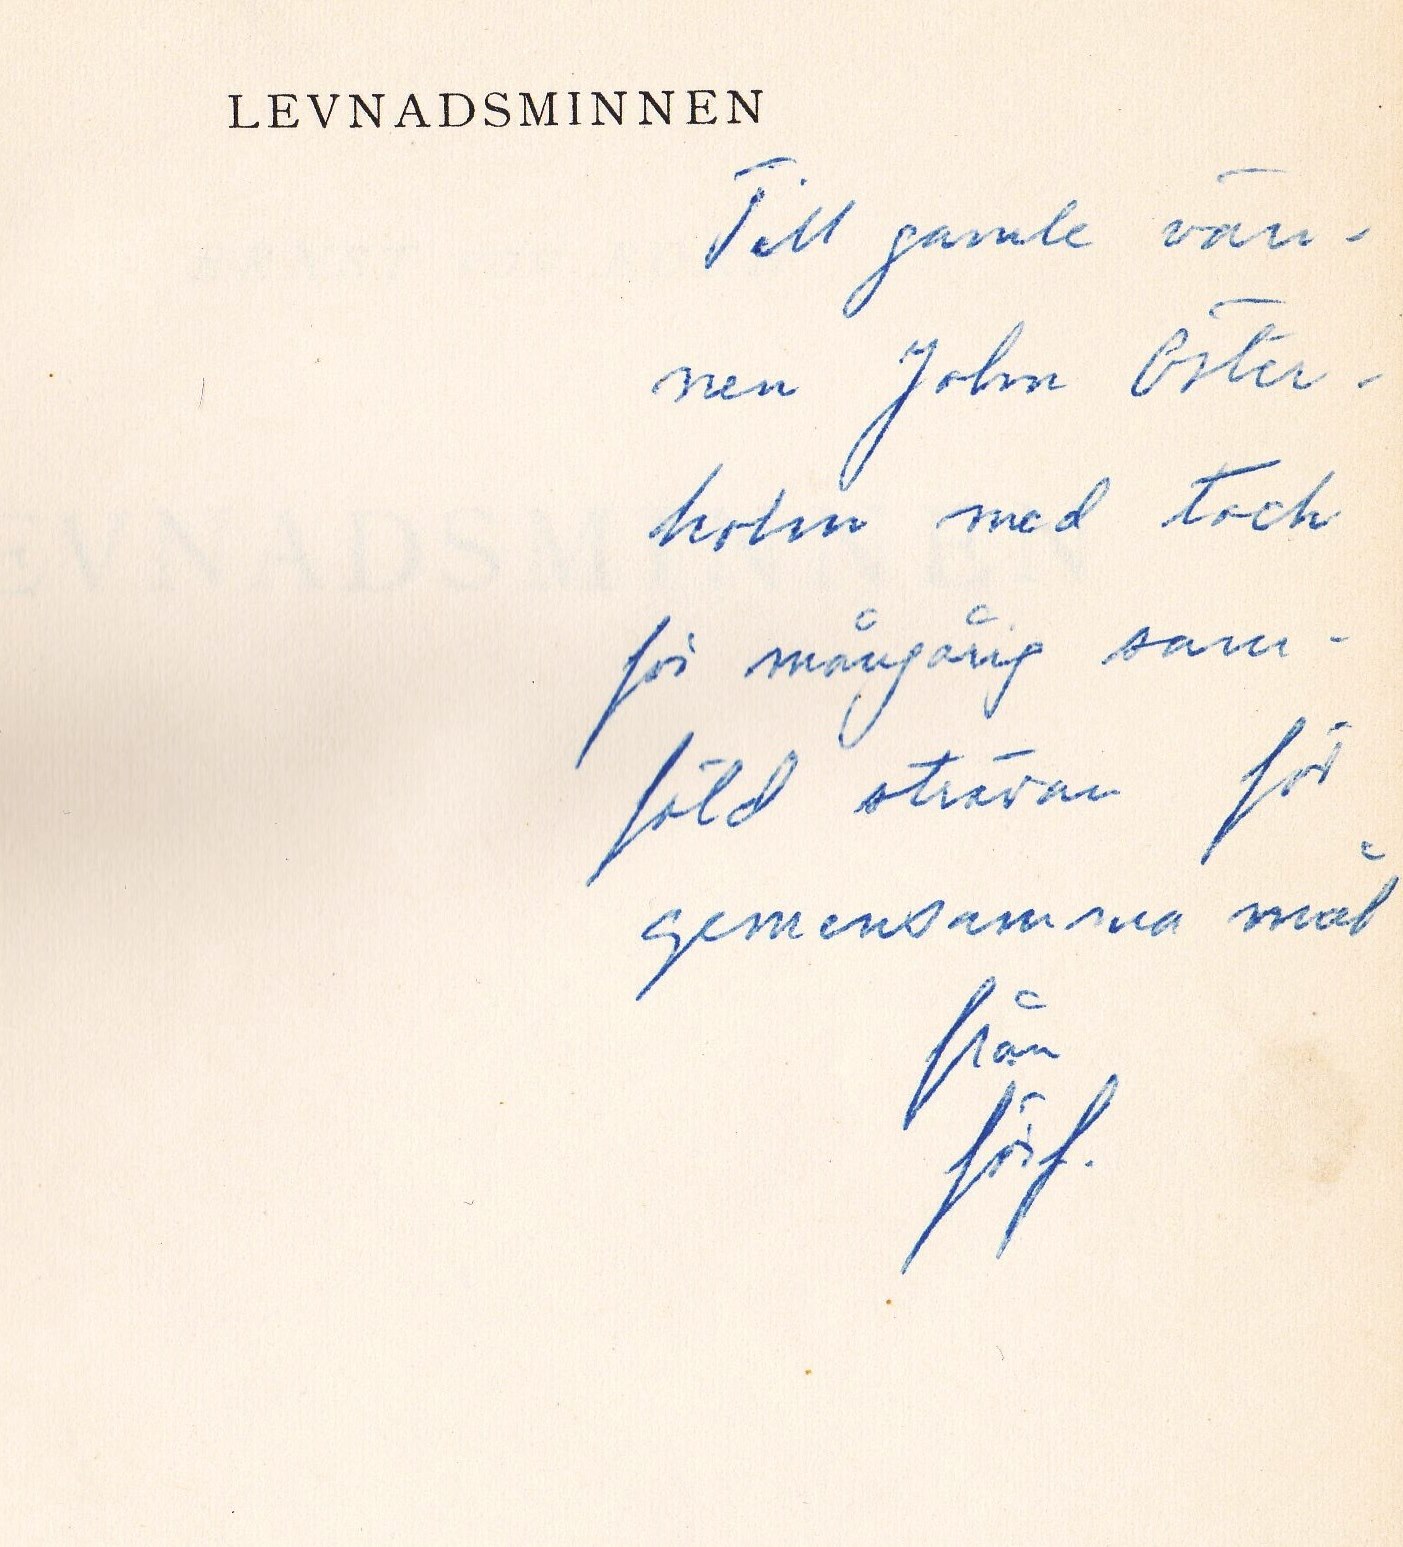 LEVNADSMINNEN
Till gamle vän-
nen John Öster-
holm med tack
för mångårig sam-
fäld strävan för
gemensamma mål
från
förf.